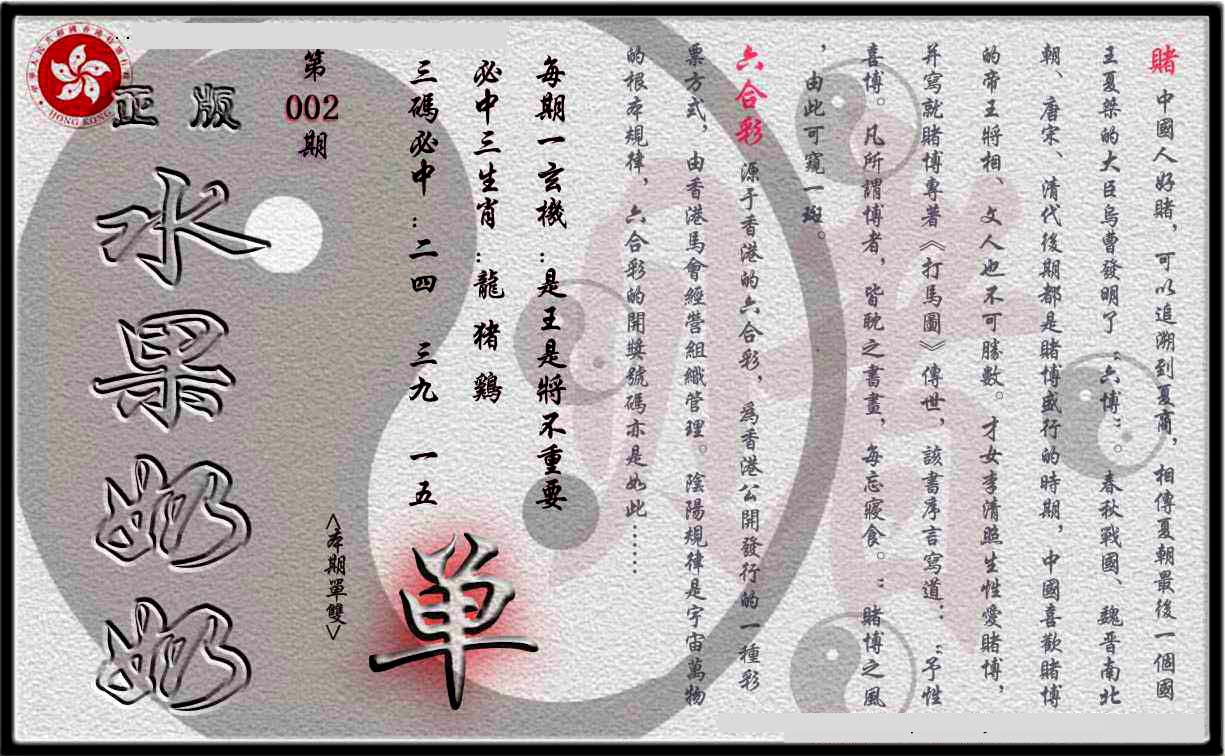 賭 中國人好賭，可以追溯到夏商，相傳夏朝最後一個國
王夏桀的大臣烏曹發明了“六博”。春秋戰國、魏晋南北
朝、唐宋、清代後期都是賭博盛行的時期，中國喜歡賭博
的帝王將相、文人也不可勝數。才女李清照生性愛賭博，
并寫就賭博專著《打馬圖》傳世，該書序言寫道：“予性
喜博。凡所謂博者，皆耽之書畫，每忘寢食。”賭博之風
，由此可窺一斑。
六合彩 源于香港的六合彩，爲香港公開發行的一種彩
票方式，由香港馬會經營組織管理。陰陽規律是宇宙萬物
的根本規律，六合彩的開獎號碼亦是如此……
每期一玄機：是王是將不重要
必中三生肖：龍 猪 鷄
三碼必中：二四 三九 一五
单
<本期單雙>
第
002
期
正版
水果奶奶
HONG KONG